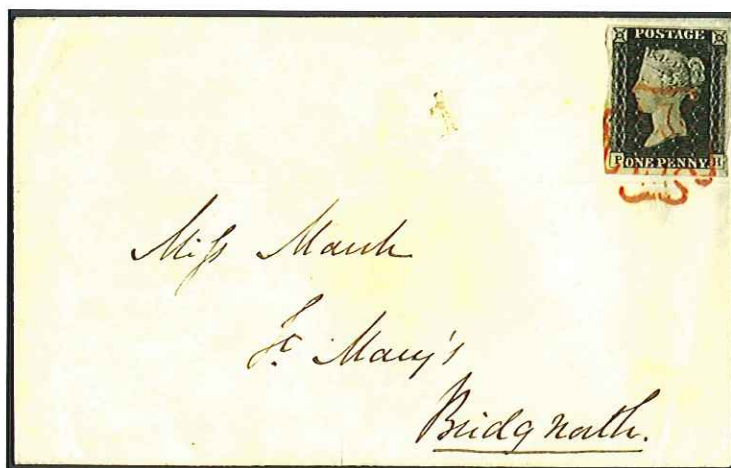 POSTAGE
P ONE PENNY H
Miss March
St. Mary's
Bridgnorth.